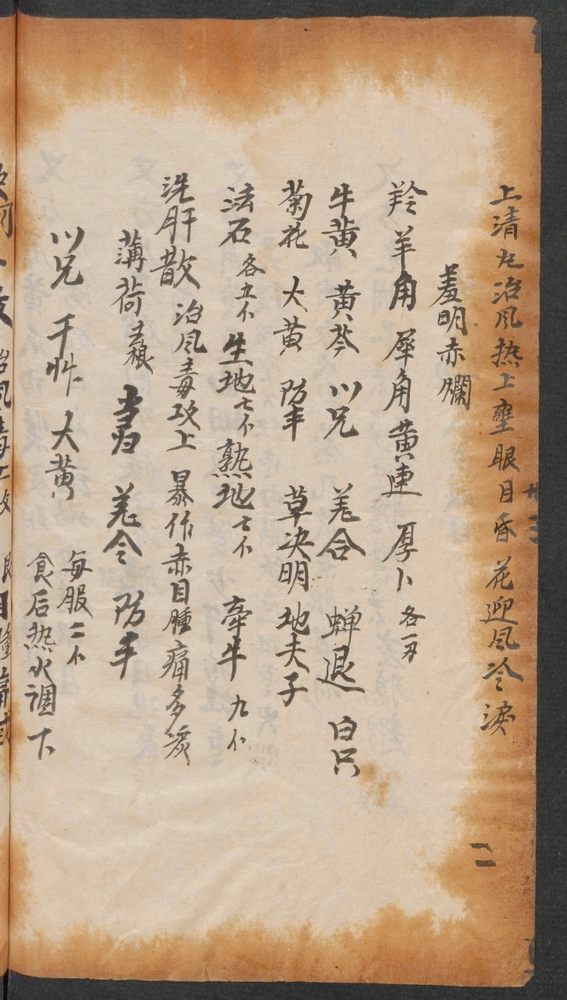 上清丸治风热上壅眼目昏花迎风冷淚
羞明赤爛
羚羊角 犀角 黄連 厚卜 各一刄
牛黄 黄芩 川兄 羌合 蝉退 白只
菊花 大黄 防丰 草决明 地夫子
法石 各五个 生地七个 熟地七个 牵牛 九个
洗肝散 治风毒攻上 暴作赤目腫痛多淚
薄荷 当归 羌合 防丰
川兄 干 大黄
每服二个
食后热火調下
二